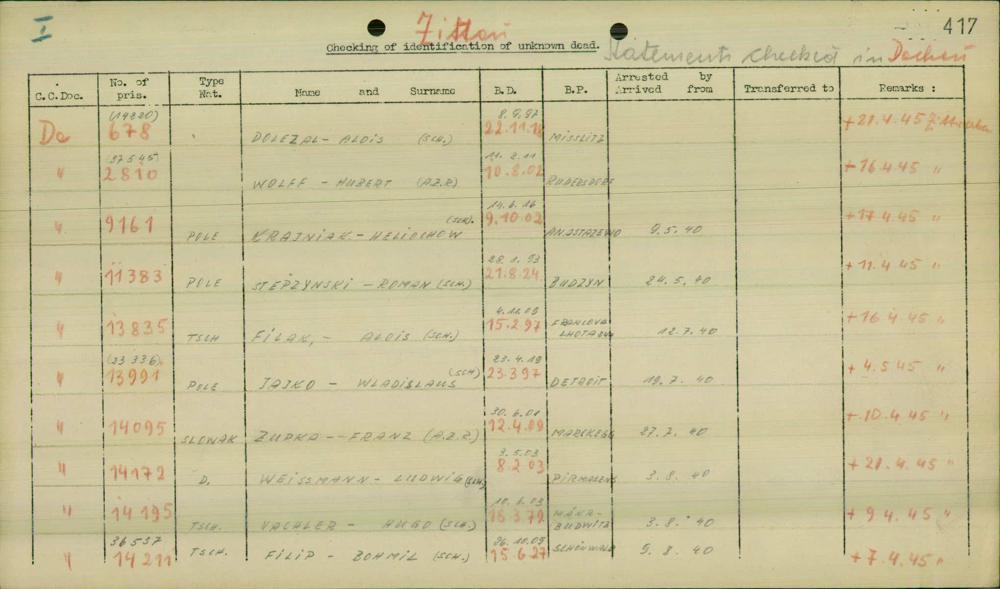 I 417
Zittau
Checking of identification of unknown dead. Statements checked in Dachau
C.C.Doc. No. of pris. Type Nat. Name and Surname B.D. B.P. Arrested by Arrived from Transferred to Remarks :
(19220) 8.9.97
Da 678 DOLEZAL - ALOIS (SCH.) 22.11.18 MISSLITZ +21.4.45
(37545) 11.2.11
" 2810 WOLFF - HUBERT (A.Z.R) 10.8.02 RUDERSDORF +16 4 45 "
14.6.16
" 9161 POLE KRAJNIAK - HELIOCHOW (SCH). 9.10.02 ANASTAZEWO 9.5.40 +17 4.45 "
28.1.93
" 11383 POLE STEPZYNSKI - ROMAN (SCH) 21.8.24 BUDZYN 24.5.40 +11.4 45 "
4.12.09
" 13835 TSCH FILAK, - ALOIS (SCH.) 15.2.97 FRANCOVA LHOTA 12.7.40 +16 4.45 "
(23 336) 23.4.19
" 13991 POLE JAJKO - WLADISLAUS (SCH) 23.3 97 DETROIT 19.7. 40 +4.5 45 "
30.6.01
" 14095 SLOWAK ZUPKA - FRANZ (A.Z.R.) 12.4.09 MARCHEGG 27.7. 40 +10.4 45 "
3.5.03
" 14172 D. WEISSMANN - LUDWIG (SCH.) 8.2 03 PIRMASENS 3.8. 40 +21.4.45 "
10.6.03
" 14195 TSCH. VACHLER - HUGO (SCH.) 18.3.79 BUDWITZ 3.8. 40 +9 4.45 "
36537 26.10.09
" 14211 TSCH. FILIP - BOHMIL (SCH.) 15.6.27 SCHÖNWALD 9.8. 40 +7.4.45 "